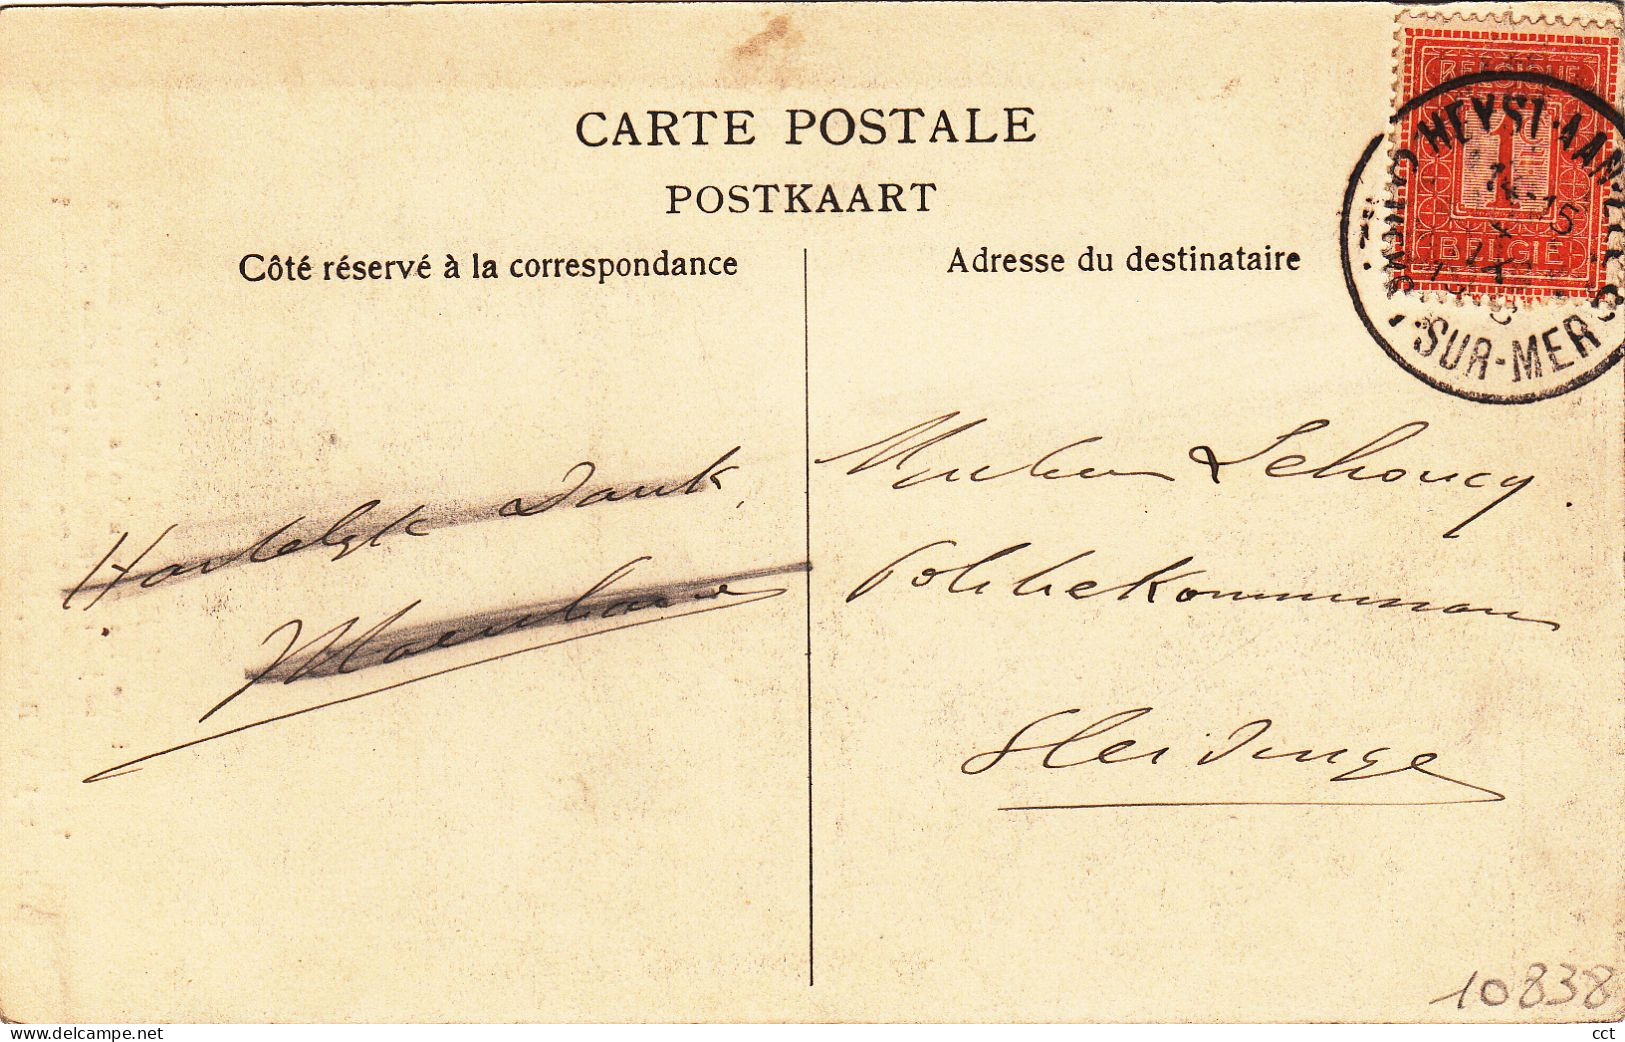 CARTE POSTALE
POSTKAART
Côté réservé à la correspondance
Adresse du destinataire
BELGIQUE
1
BELGIË
HEYST-AAN-ZEE
SUR-MER
Hartelijk Dank,
Mijnheer Lehoucq.
Politiekommissaris
Sleidinge
10838
www.delcampe.net
cct